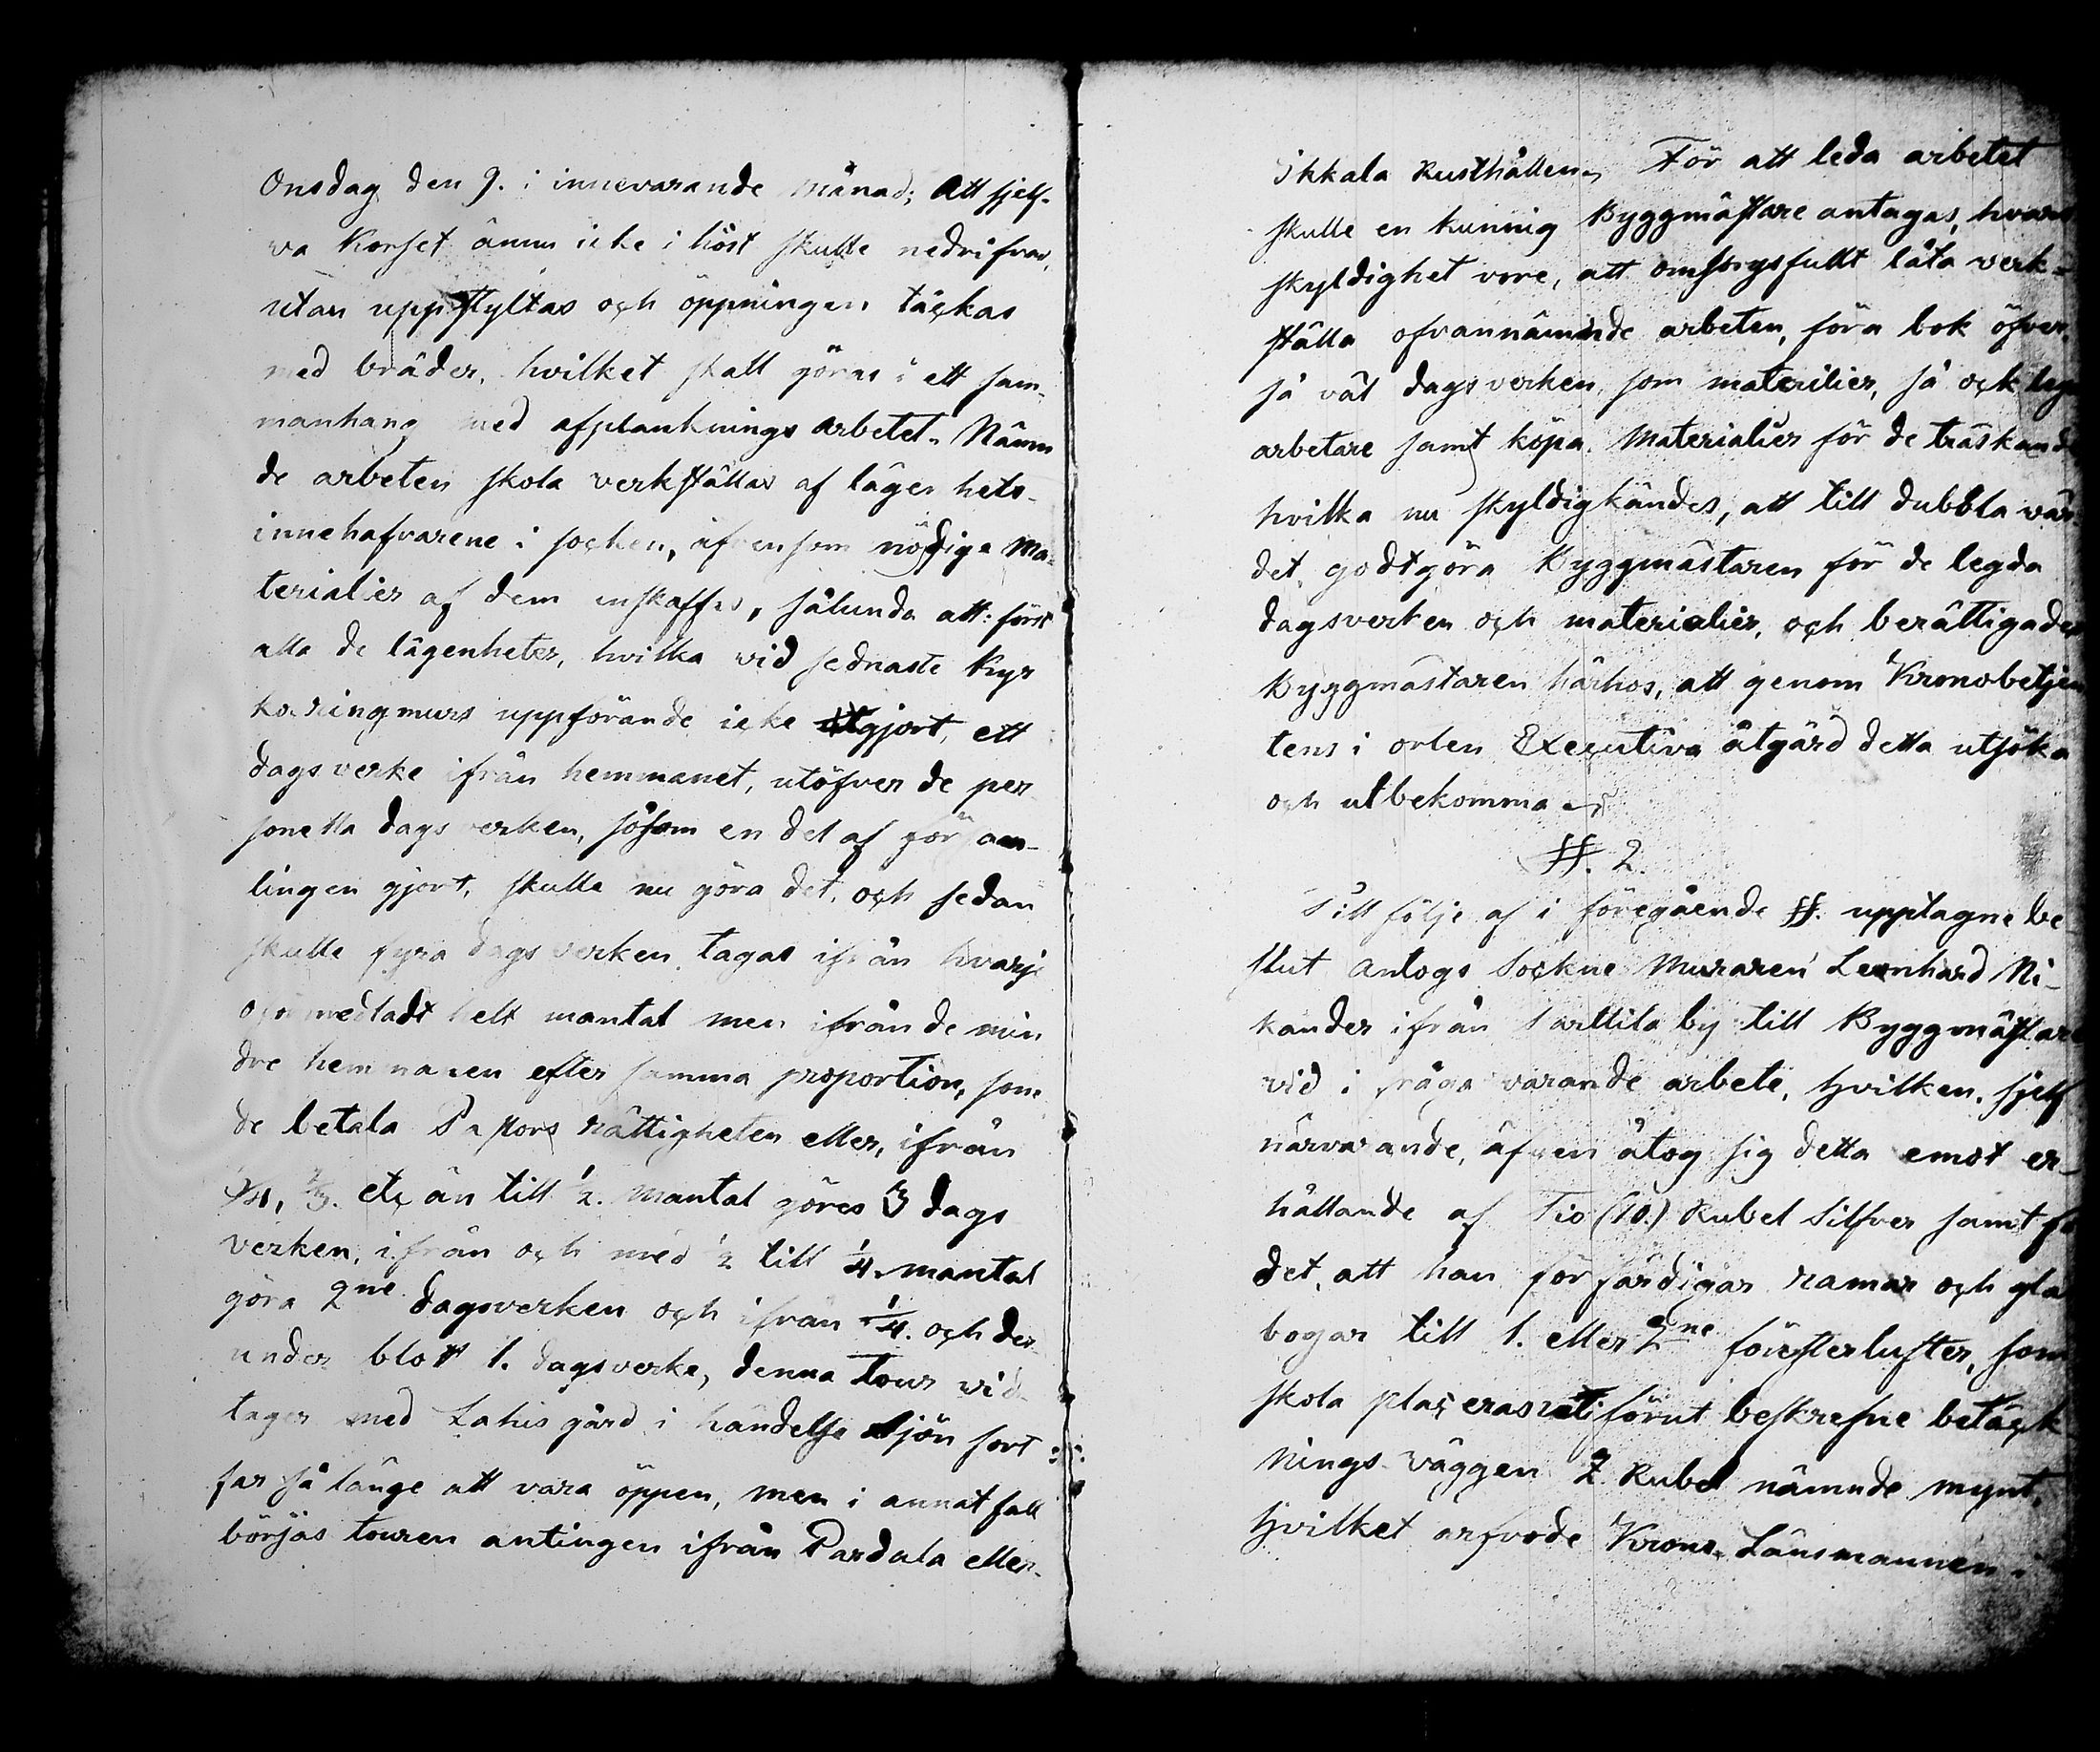 Onsdag den 9. i innevarande månad; Att sjelf-
va Korset ännu icke i höst skulle nedrifvas,
utan uppstyltas och öppningen täckas
med bräder, hvilket skall göras i ett sam-
manhang med afplanknings arbetet. Nämn
de arbeten skola verkställas af lägenhets-
innehafvarene i socken, äfvensom nödiga Ma-
terialier af dem anskaffas, sålunda att: först
alla de lägenheter, hvilka vid sednaste Kyr
ko ringmurs uppförande icke utgjort, ett
dagsverke ifrån hemmanet, utöfver de per
sonella dagsverken, såsom en del af försam-
lingen gjort, skulle nu göra det, och sedan
skulle fyra dagsverken tagas ifrån hvarje
oförmedladt helt mantal men ifrån de min
dre hemmanen efter samma proportion, som
de betala Pastors rättigheten eller, ifrån
3/4, 2/3. etc än till 1/2. mantal göres 3 dags
verken, ifrån och med 1/2 till 1/4. mantal
göra 2ne dagsverken och ifrån 1/4. och der-
under blott 1. dagsverke, denna tour vid-
tager med Lahis gård i händelse sjön fort
far så länge att vara öppen, men i annat fall
börjas touren antingen ifrån Pardala eller
Ikkala Rusthållen. För att leda arbetet
skulle en kunnig Byggmästare antagas, hvars
skyldighet vore, att omsorgsfullt låta verk-
ställa ofvannämnde arbeten, föra bok öfver
så väl dagsverken, som materilier, så ock lega
arbetare samt köpa Materialier för de träskande
hvilka nu skyldigkändes, att till dubbla vär-
det, godtgöra Byggmästaren för de legda
dagsverken och materialier, och berättigades
Byggmästaren härhos, att genom Kronobetjen
tens i orten Executiva åtgärd detta utsöka
och utbekomma
§§. 2.
Till följe af i föregående §§. upptagne be
slut antogs Sockne Muraren Leonhard Ni-
kander ifrån Sarttila by till Byggmästare
vid i fråga varande arbete, hvilken, sjelf
närvarande, äfven åtog sig detta emot er-
hållande af Tio (10.) Rubel Silfver samt för
det, att han förfärdigar ramar och gla
bogar till 1. eller 2ne fönsterlufter, som
skola placeras uti förut beskrefne betäck
nings väggen 2 Rubel nämnde mynt,
hvilket arfvode Krono Länsmannen i